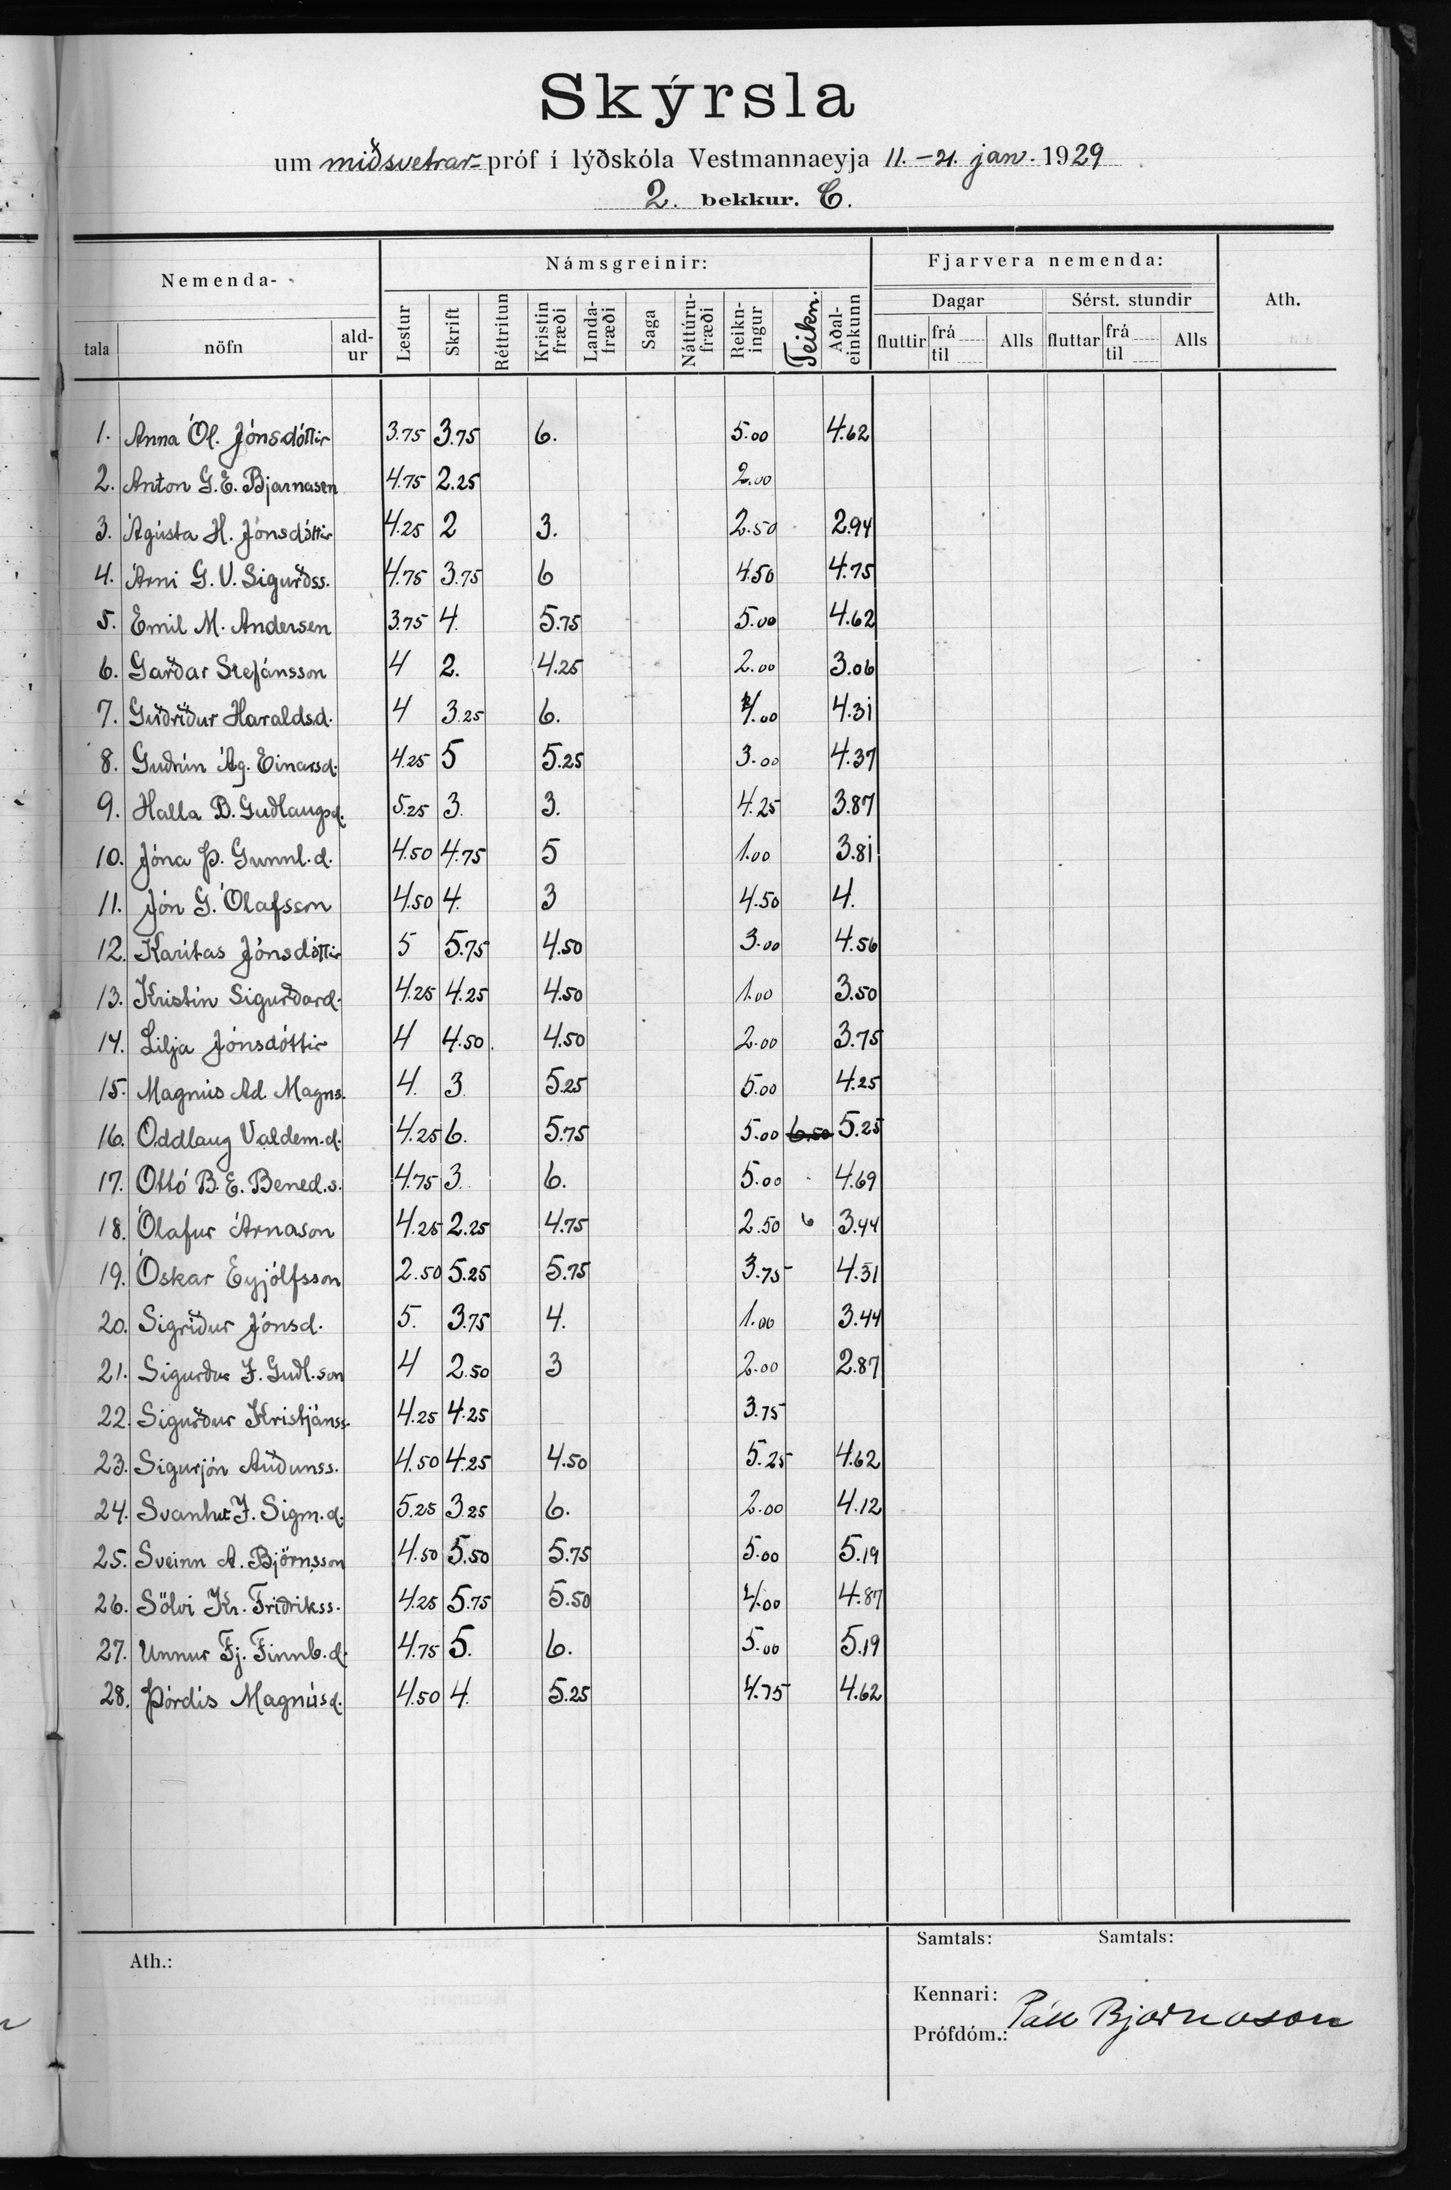 Skýrsla
um miðsvetrar- próf í lýðskóla Vestmannaeyja 11.-21. jan. 1929
2. bekkur. C.
Nemenda- Námsgreinir: Fjarvera nemenda: Ath.
Dagar Sérst. stundir
tala nöfn ald-ur Lestur Skrift Réttritun Kristin fræði Landa-fræði Saga Náttúru-fræði Reikn-ingur Teikn. Aðal-einkunn fluttir frá til Alls fluttar frá til Alls
1. Anna Ól. Jónsdóttir 3.75 3.75 6. 5.00 4.62
2. Anton G.E. Bjarnasen 4.75 2.25 2.00
3. Ágústa H. Jónsdóttir 4.25 2 3. 2.50 2.94
4. Árni G.V. Sigurðss. 4.75 3.75 6 4.50 4.75
5. Emil M. Andersen 3.75 4. 5.75 5.00 4.62
6. Garðar Stefánsson 4 2. 4.25 2.00 3.06
7. Guðríður Haraldsd. 4 3.25 6. 4.00 4.31
8. Guðrún Ág. Einarsd. 4.25 5 5.25 3.00 4.37
9. Halla B. Guðlaugsd. 5.25 3. 3. 4.25 3.87
10. Jóna Þ. Gunnl.d. 4.50 4.75 5 1.00 3.81
11. Jón G. Ólafsson 4.50 4. 3 4.50 4.
12. Karítas Jónsdóttir 5 5.75 4.50 3.00 4.56
13. Kristín Sigurðard. 4.25 4.25 4.50 1.00 3.50
14. Lilja Jónsdóttir 4 4.50. 4.50 2.00 3.75
15. Magnús Ad. Magns. 4. 3 5.25 5.00 4.25
16. Oddlaug Valdem.d. 4.25 6. 5.75 5.00 6.50 5.25
17. Ottó B.E. Bened.s. 4.75 3. 6. 5.00 4.69
18. Ólafur Árnason 4.25 2.25 4.75 2.50 6 3.44
19. Óskar Eyjólfsson 2.50 5.25 5.75 3.75 4.31
20. Sigríður Jónsd. 5. 3.75 4. 1.00 3.44
21. Sigurður J. Guðl.son 4 2.50 3 2.00 2.87
22. Sigurður Kristjánss. 4.25 4.25 3.75
23. Sigurjón Auðunss. 4.50 4.25 4.50 5.25 4.62
24. Svanhvt J. Sigm.d. 5.25 3.25 6. 2.00 4.12
25. Sveinn A. Björnsson 4.50 5.50 5.75 5.00 5.19
26. Sölvi Kr. Friðrikss. 4.25 5.75 5.50 4.00 4.87
27. Unnur Fj. Finnb.d. 4.75 5. 6. 5.00 5.19
28. Þórdís Magnúsd. 4.50 4. 5.25 4.75 4.62
Samtals: Samtals:
Ath.:
Kennari: Páll Bjarnason
Prófdóm.: